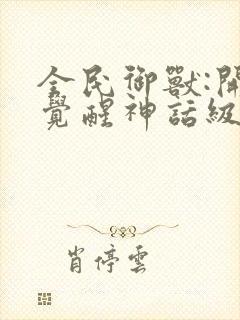 全民御獸:開
覺醒神話級
肖停雲